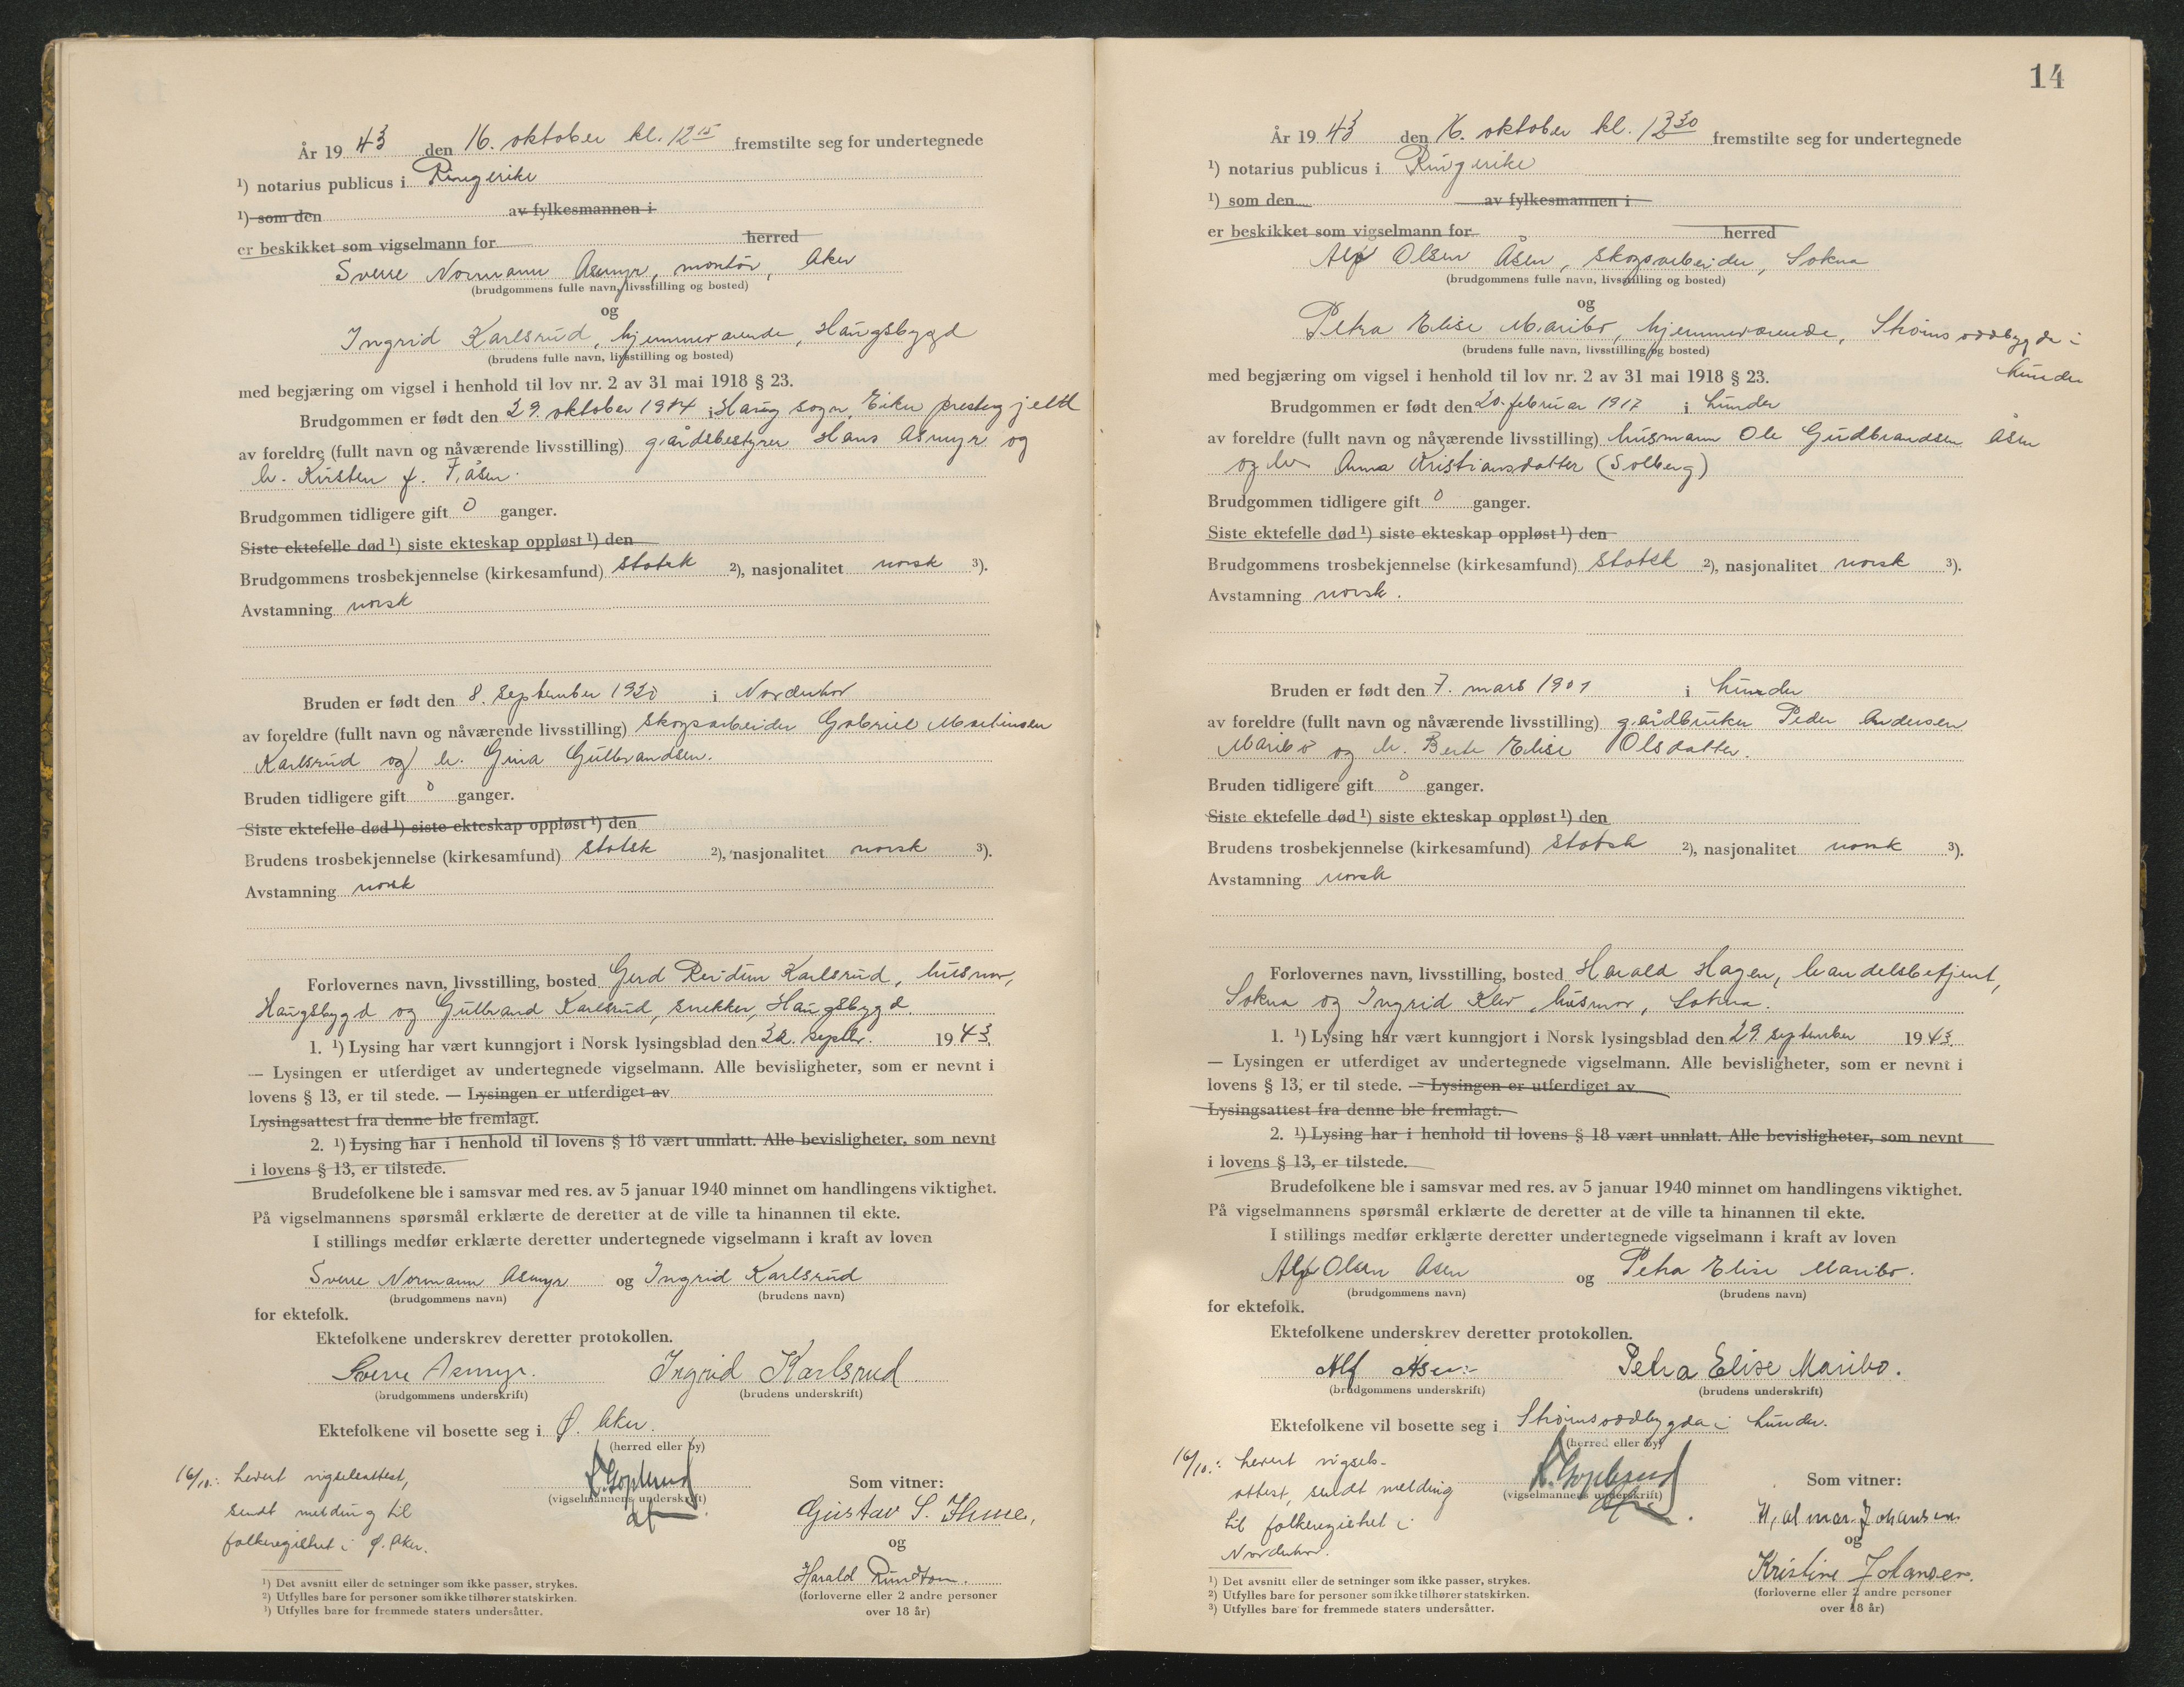 År 1943 den 16. oktober kl. 12 15 fremstilte seg for undertegnede
¹) notarius publicus i Ringerike
¹) som den av fylkesmannen i
er beskikket som vigselmann for herred
Sverre Normann Asmyr, montør, Aker
(brudgommens fulle navn, livsstilling og bosted)
og
Ingrid Karlsrud, hjemmeværende, Haugsbygd
(brudens fulle navn, livsstilling og bosted)
med begjæring om vigsel i henhold til lov nr. 2 av 31 mai 1918 § 23.
Brudgommen er født den 29. oktober 1914 i Haug sogn, Eiker prestegjeld
av foreldre (fullt navn og nåværende livsstilling) gårdsbestyrer Hans Asmyr og
h. Kirsten f. Åsen.
Brudgommen tidligere gift 0 ganger.
Siste ektefelle død ¹) siste ekteskap oppløst ¹) den
Brudgommens trosbekjennelse (kirkesamfund) statsk ²), nasjonalitet norsk ³).
Avstamning norsk
Bruden er født den 8. september 1920 i Norderhov
av foreldre (fullt navn og nåværende livsstilling) skogsarbeider Gabriel Martinsen
Karlsrud og h. Gina Gulbrandsen.
Bruden tidligere gift 0 ganger.
Siste ektefelle død ¹) siste ekteskap oppløst ¹) den
Brudens trosbekjennelse (kirkesamfund) statsk ²), nasjonalitet norsk ³).
Avstamning norsk
Forlovernes navn, livsstilling, bosted Gerd Reidun Karlsrud, husmor,
Haugsbygd og Gulbrand Karlsrud, snekker, Haugsbygd.
1. ¹) Lysing har vært kunngjort i Norsk lysingsblad den septbr. 1943.
— Lysingen er utferdiget av undertegnede vigselmann. Alle bevisligheter, som er nevnt i
lovens § 13, er til stede. — Lysingen er utferdiget av
Lysingsattest fra denne ble fremlagt.
2. ¹) Lysing har i henhold til lovens § 18 vært unnlatt. Alle bevisligheter, som nevnt
i lovens § 13, er tilstede.
Brudefolkene ble i samsvar med res. av 5 januar 1940 minnet om handlingens viktighet.
På vigselmannens spørsmål erklærte de deretter at de ville ta hinannen til ekte.
I stillings medfør erklærte deretter undertegnede vigselmann i kraft av loven
Sverre Normann Asmyr og Ingrid Karlsrud
(brudgommens navn) (brudens navn)
for ektefolk.
Ektefolkene underskrev deretter protokollen.
Sverre Asmyr. Ingrid Karlsrud
(brudgommens underskrift) (brudens underskrift)
Ektefolkene vil bosette seg i Ø. Aker.
(herred eller by)
16/10.: Levert vigselsattest,
sendt melding til
folkeregistret i Ø. Aker.
(vigselmannens underskrift)
Som vitner:
Gustav S.
og
Harald
(forloverne eller 2 andre personer
over 18 år)
¹) Det avsnitt eller de setninger som ikke passer, strykes.
²) Utfylles bare for personer som ikke tilhører statskirken.
³) Utfylles bare for fremmede staters undersåtter.
14
År 1943 den 16. oktober kl. 13 30 fremstilte seg for undertegnede
¹) notarius publicus i Ringerike
¹) som den av fylkesmannen i
er beskikket som vigselmann for herred
Alf Olsen Åsen, skogsarbeider, Sokna
(brudgommens fulle navn, livsstilling og bosted)
og
Petra Elise Maribo, hjemmeværende, Strømsoddbygda i
Lunder
(brudens fulle navn, livsstilling og bosted)
med begjæring om vigsel i henhold til lov nr. 2 av 31 mai 1918 § 23.
Brudgommen er født den 20. februar 1917 i Lunder
av foreldre (fullt navn og nåværende livsstilling) husmann Ole Gudbrandsen Åsen
og h. Anna Kristiansdatter (Solberg)
Brudgommen tidligere gift 0 ganger.
Siste ektefelle død ¹) siste ekteskap oppløst ¹) den
Brudgommens trosbekjennelse (kirkesamfund) statsk ²), nasjonalitet norsk ³).
Avstamning norsk.
Bruden er født den 7. mars 1901 i Lunder
av foreldre (fullt navn og nåværende livsstilling) gårdbruker Peder Andersen
Maribo og h. Berte Elise Olsdatter.
Bruden tidligere gift 0 ganger.
Siste ektefelle død ¹) siste ekteskap oppløst ¹) den
Brudens trosbekjennelse (kirkesamfund) statsk ²), nasjonalitet norsk ³).
Avstamning norsk
Forlovernes navn, livsstilling, bosted Harald Hagen, handelsbetjent,
Sokna og Ingrid Klev, husmor, Sokna.
1. ¹) Lysing har vært kunngjort i Norsk lysingsblad den 29. september 1943.
— Lysingen er utferdiget av undertegnede vigselmann. Alle bevisligheter, som er nevnt i
lovens § 13, er til stede. — Lysingen er utferdiget av
Lysingsattest fra denne ble fremlagt.
2. ¹) Lysing har i henhold til lovens § 18 vært unnlatt. Alle bevisligheter, som nevnt
i lovens § 13, er tilstede.
Brudefolkene ble i samsvar med res. av 5 januar 1940 minnet om handlingens viktighet.
På vigselmannens spørsmål erklærte de deretter at de ville ta hinannen til ekte.
I stillings medfør erklærte deretter undertegnede vigselmann i kraft av loven
Alf Olsen Åsen og Petra Elise Maribo.
(brudgommens navn) (brudens navn)
for ektefolk.
Ektefolkene underskrev deretter protokollen.
Alf Åsen Petra Elise Maribo.
(brudgommens underskrift) (brudens underskrift)
Ektefolkene vil bosette seg i Strømsoddbygda i Lunder.
(herred eller by)
16/10.: Levert vigsels-
attest, sendt melding
til folkeregistret i
Norderhov.
(vigselmannens underskrift)
Som vitner:
Hjalmar Johansen
og
Kristine Johansen.
(forloverne eller 2 andre personer
over 18 år)
¹) Det avsnitt eller de setninger som ikke passer, strykes.
²) Utfylles bare for personer som ikke tilhører statskirken.
³) Utfylles bare for fremmede staters undersåtter.